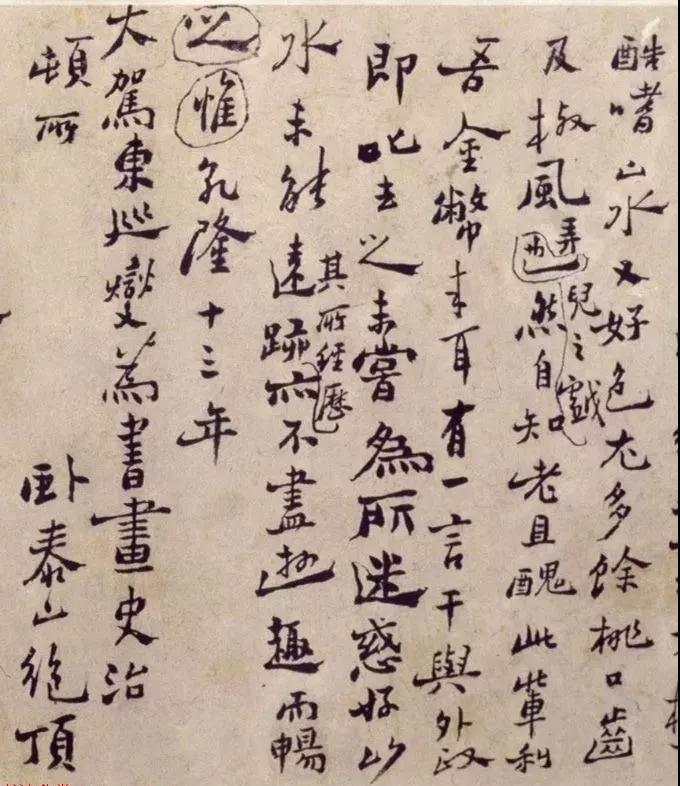 酷嗜山水又好色尤多餘桃口齒
及椒風弄兒之戲然自知老且醜此輩利
吾金幣来耳有一言干與外政
即叱去之未嘗為所迷惑好山
水未能遠跡其所經歷亦不盡遊趣而暢
之惟乾隆十三年
大駕東巡燮為書畫史治
頓所卧泰山絶頂